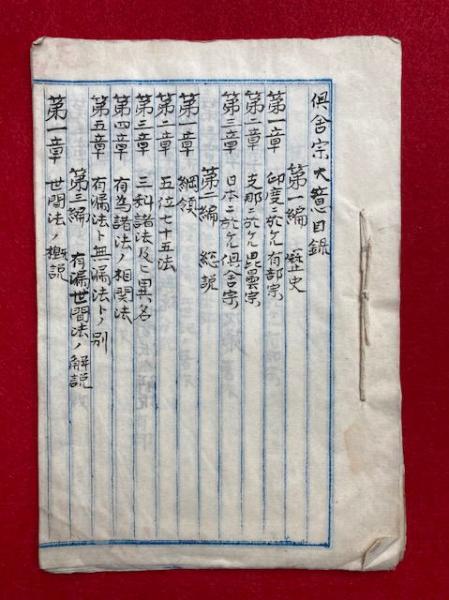 倶舎宗大意目録
第一編 歴史
第一章 印度ニ於ケル有部宗
第二章 支那ニ於ケル毘曇宗
第三章 日本ニ於ケル倶舎宗
第二編 総説
第一章 綱領
第二章 五位七十五法
第三章 三科諸法及ヒ異名
第四章 有為諸法ノ相関法
第五章 有漏法ト無漏法トノ別
第三編 有漏世間法ノ解説
第一章 世間法ノ概説